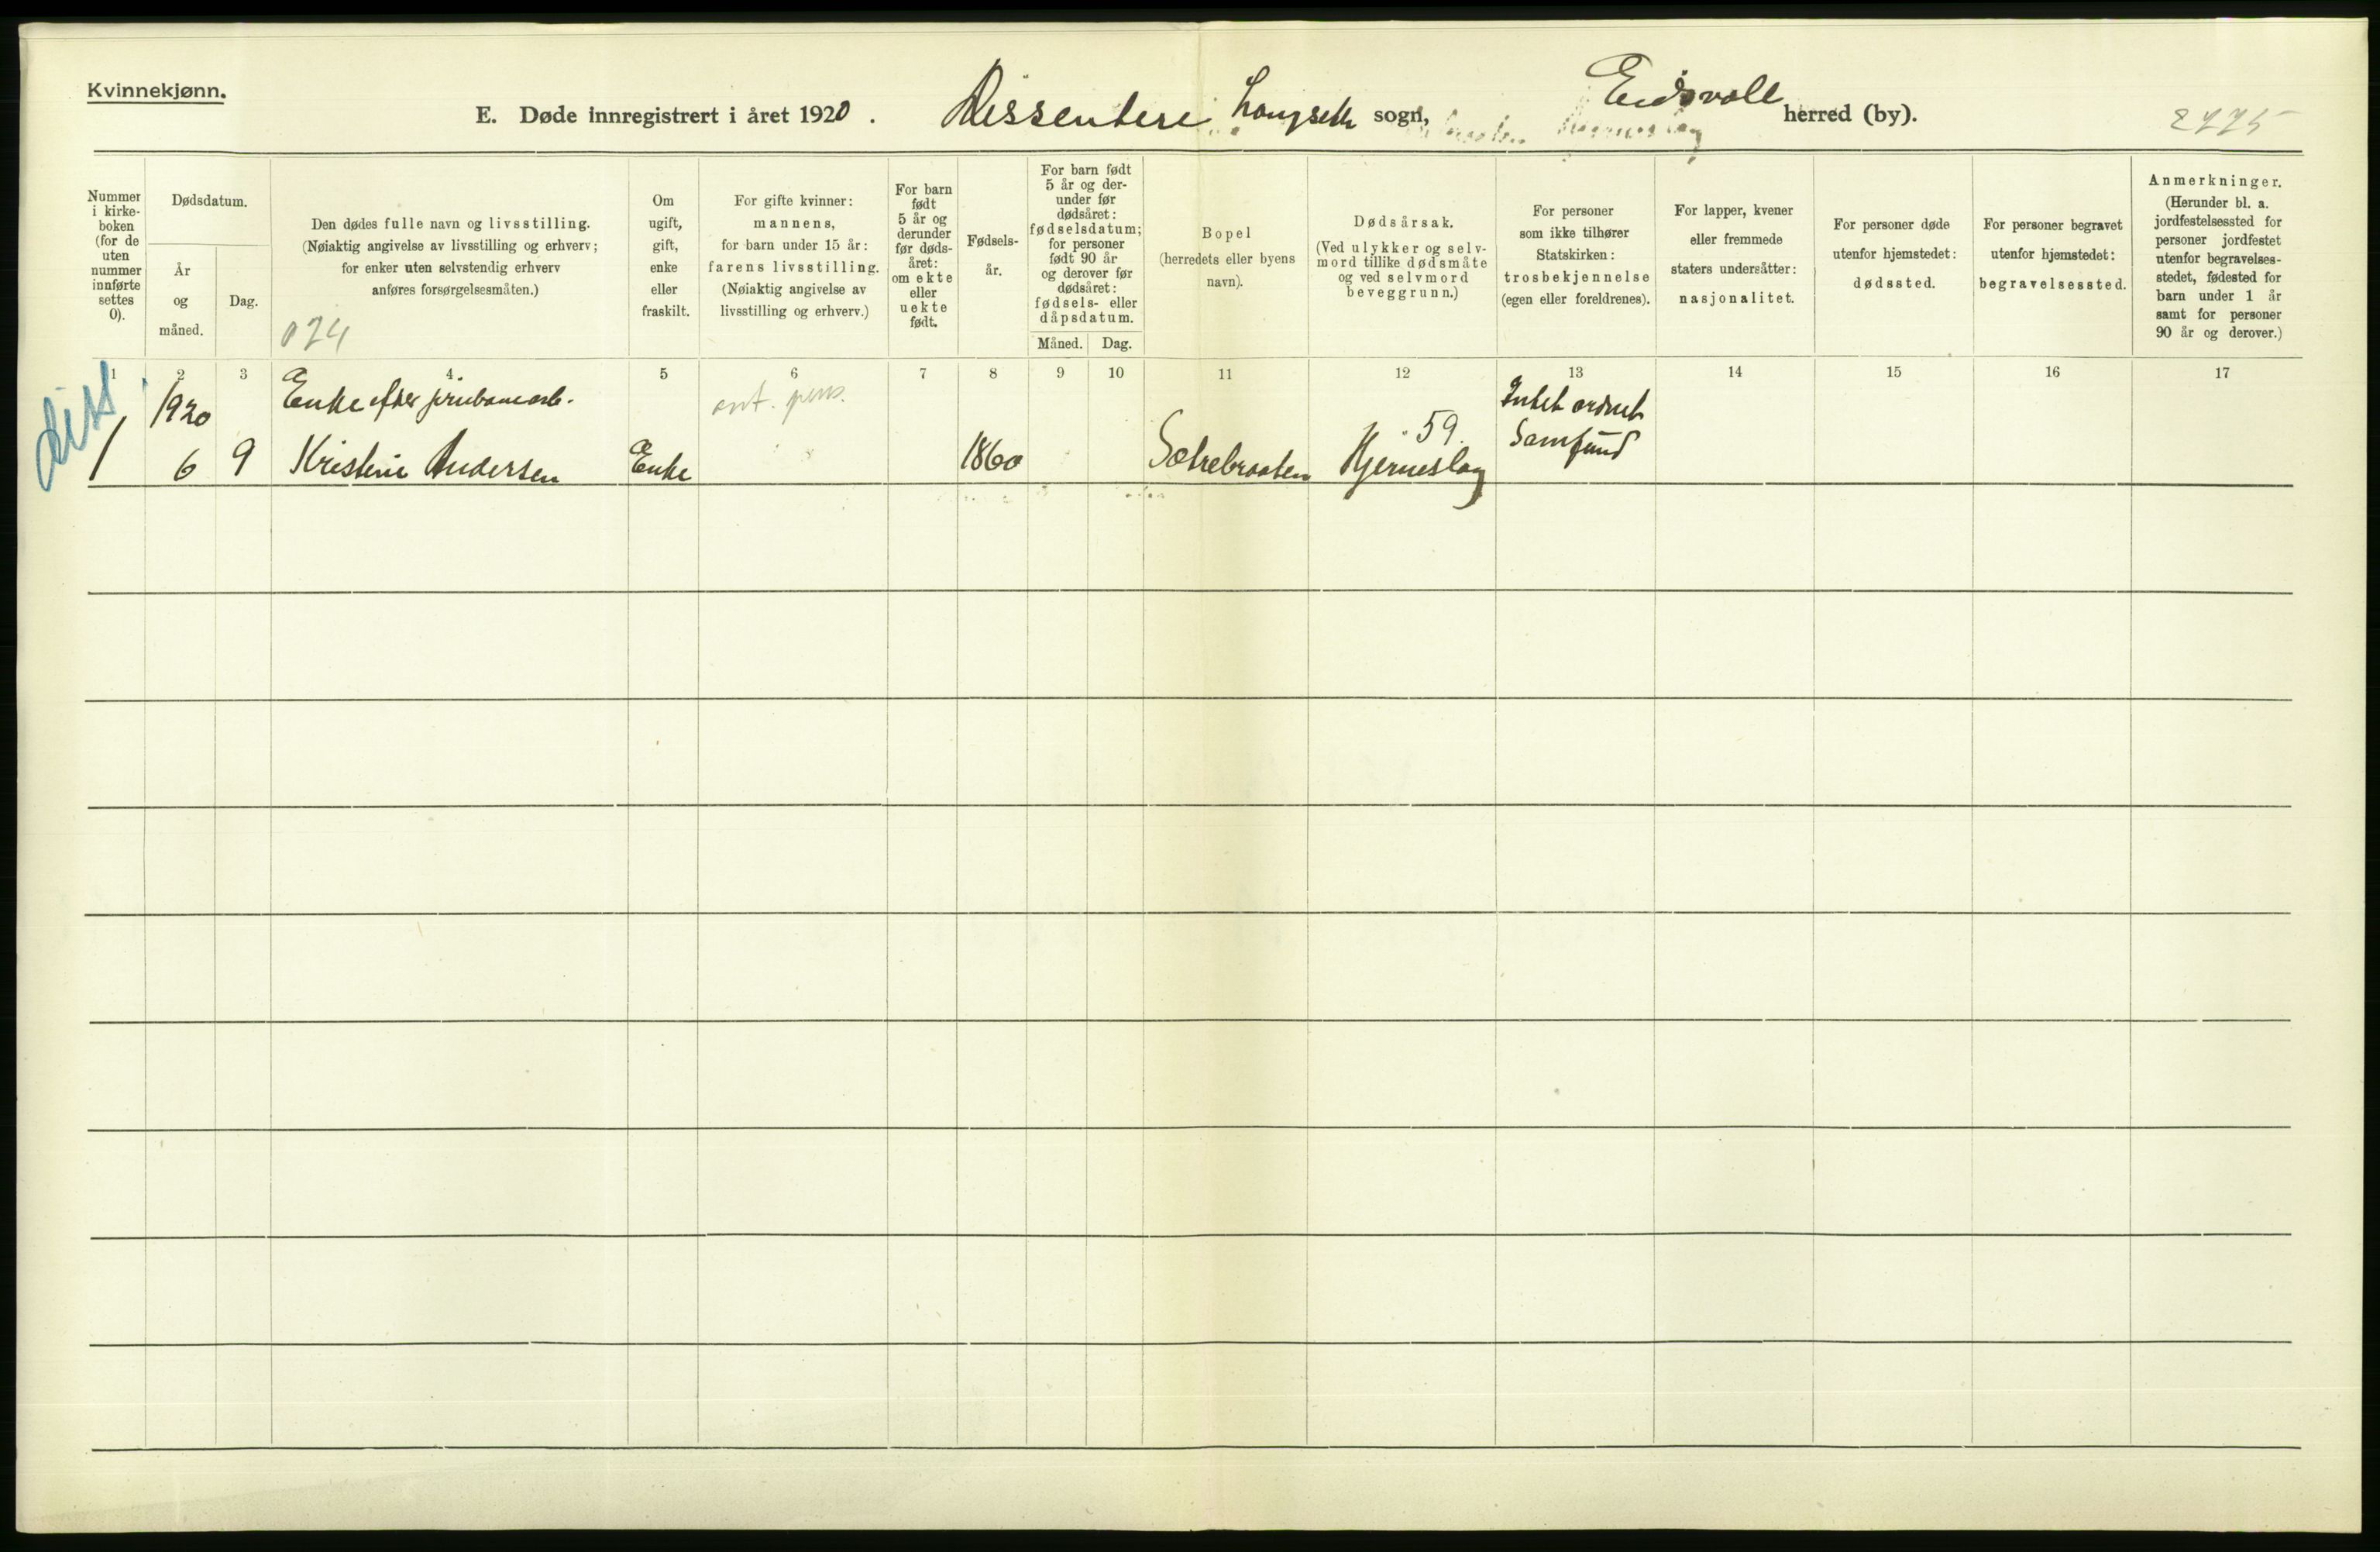 Kvinnekjønn.
E. Døde innregistrert i året 1920. Dissentere Langseth sogn, Eidsvoll herred (by).
2775
Nummer i kirke-boken (for de uten nummer innførte settes 0).
Dødsdatum.
År og måned.
Dag.
Den dødes fulle navn og livsstilling.
(Nøiaktig angivelse av livsstilling og erhverv;
for enker uten selvstendig erhverv
anføres forsørgelsesmåten.)
024
Om ugift, gift, enke eller fraskilt.
For gifte kvinner:
mannens,
for barn under 15 år:
farens livsstilling.
(Nøiaktig angivelse av
livsstilling og erhverv.)
For barn født 5 år og derunder før døds-året: om ekte eller uekte født.
Fødsels-år.
For barn født 5 år og der-under før dødsåret: fødselsdatum; for personer født 90 år og derover før dødsåret: fødsels- eller dåpsdatum.
Måned.
Dag.
Bopel
(herredets eller byens
navn).
Dødsårsak.
(Ved ulykker og selv-
mord tillike dødsmåte
og ved selvmord
beveggrunn.)
For personer
som ikke tilhører
Statskirken:
trosbekjennelse
(egen eller foreldrenes).
For lapper, kvener
eller fremmede
staters undersåtter:
nasjonalitet.
For personer døde
utenfor hjemstedet:
dødssted.
For personer begravet
utenfor hjemstedet:
begravelsessted.
Anmerkninger.
(Herunder bl. a.
jordfestelsessted for
personer jordfestet
utenfor begravelses-
stedet, fødested for
barn under 1 år
samt for personer
90 år og derover.)
1 2 3 4 5 6 7 8 9 10 11 12 13 14 15 16 17
diss
1920 Enke efter Intet ordnet
59. Samfund
1 6 9 Kristine Andersen Enke 1860 Sætrebraaten Hjerneslag